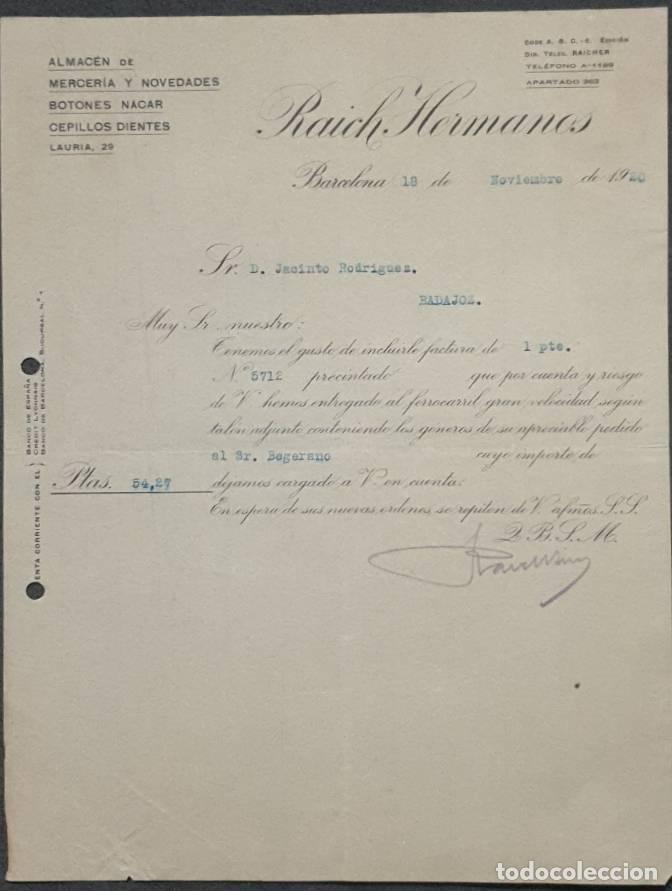 ALMACÉN DE
MERCERÍA Y NOVEDADES
BOTONES NÁCAR
CEPILLOS DIENTES
LAURIA, 29
CODE A. B. C. - 5. EDICIÓN
DIR. TELEG. RAICHER
TELÉFONO A-1189
APARTADO 262
Raich Hermanos
Barcelona 18 de Noviembre de 1920
Sr. D. Jacinto Rodríguez.
BADAJOZ.
Muy Sr. nuestro:
Tenemos el gusto de incluirle factura de 1 pte.
Nº 5712 precintado que por cuenta y riesgo
de V. hemos entregado al ferrocarril gran velocidad según
talón adjunto conteniendo los géneros de su apreciable pedido
al Sr. Begerano cuyo importe de
Ptas. 54,27 dejamos cargado a V. en cuenta.
En espera de sus nuevas ordenes, se repiten de V. afmos. S.S.
Q. B. S. M.
ENTA CORRIENTE CON EL
BANCO DE ESPAÑA
CRÉDIT LYONNAIS
BANCO DE BARCELONA, SUCURSAL N.º 1
todocoleccion